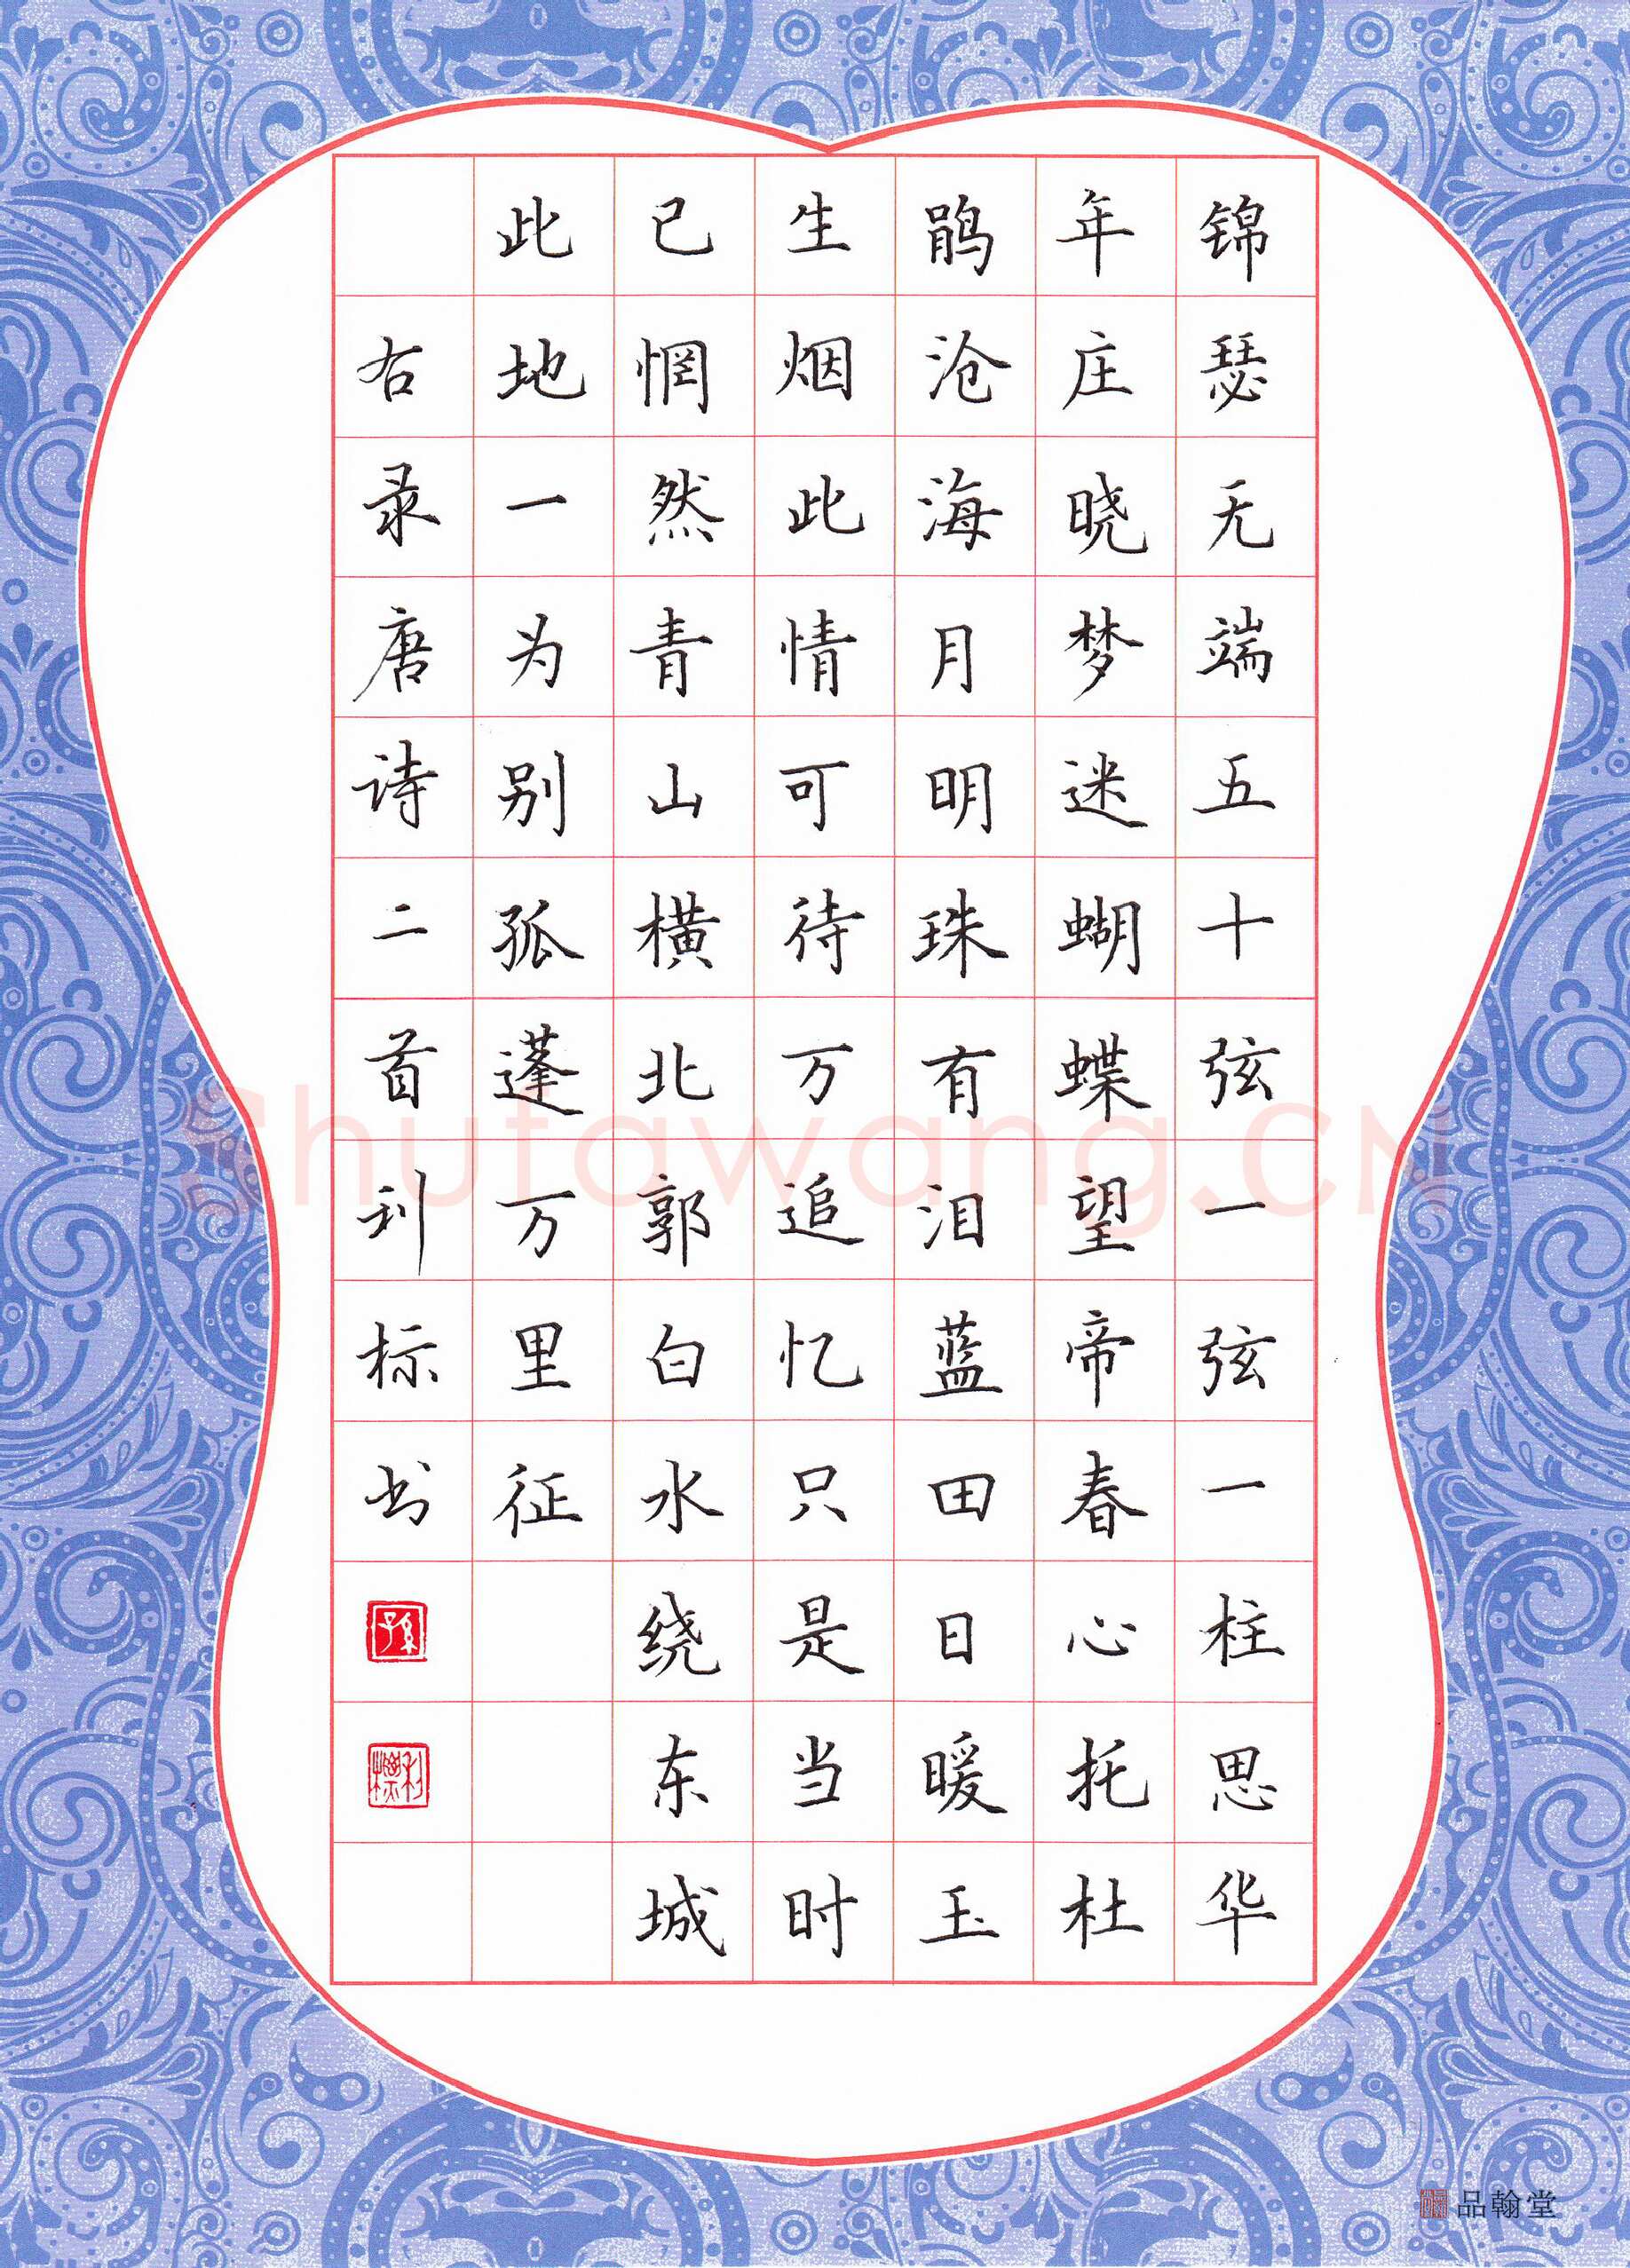 锦瑟无端五十弦一弦一柱思华
年庄晓梦迷蝴蝶望帝春心托杜
鹃沧海月明珠有泪蓝田日暖玉
生烟此情可待万追忆只是当时
已惘然青山横北郭白水绕东城
此地一为别孤蓬万里征
右录唐诗二首利标书
孙
利标
Shufawang.CN
品翰堂